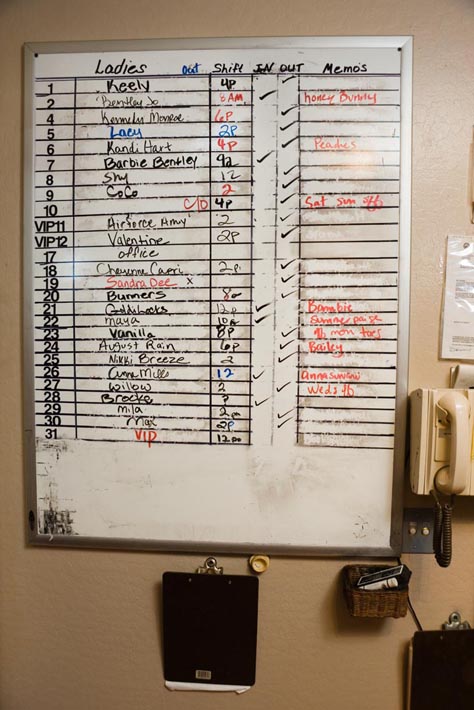 Ladies out Shift IN OUT Memos
1 Keely 4P
2 Bentley Jo 8AM Honey Bunny
4 Kennedy Monroe 6P
5 Lacy 2P
6 Kandi Hart 4P Peaches
7 Barbie Bentley 9a
8 Shy 12
9 CoCo 2
10 C/O 4P Sat Sun off
VIP11 Airforce Amy 2
VIP12 Valentine 2P
17 office
18 2p
19 Sandra Dee x
20 Burners 8a
21 Goldilocks 12p Bambie
22 maya 10a
23 Vanilla 8P
24 August Rain 6p Bailey
25 Nikki Breeze 2
26 12
27 Willow 2
28 Brooke
29 mila 2pm
30 Max 2P
31 VIP 12pm